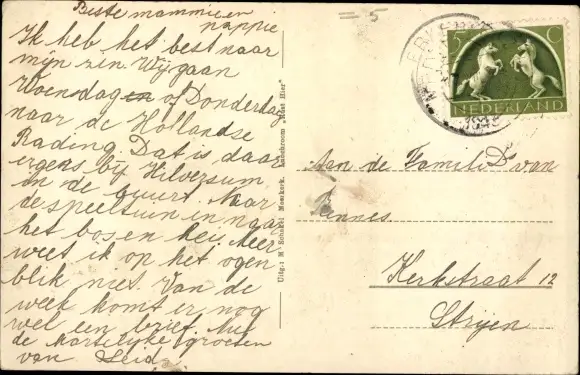 Beste mammie en
pappie
Ik heb het best naar
mijn zin. Wij gaan
Woensdag of Donderdag
naar de Hollandse
Rading. Dat is daar
ergens bij Hilversum
in de buurt. Naar
de speeltuin en naar
het bos en hei. Meer
weet ik op het ogen
blik niet. Van de
week komt er nog
wel een brief. Met
de hartelijke groeten
van
= 5
5 C
NEDERLAND
Aan de Familie D. van
Bennes
Kerkstraat 12
Strijen
Uitg.: Nijkerk. "Rust Hier"